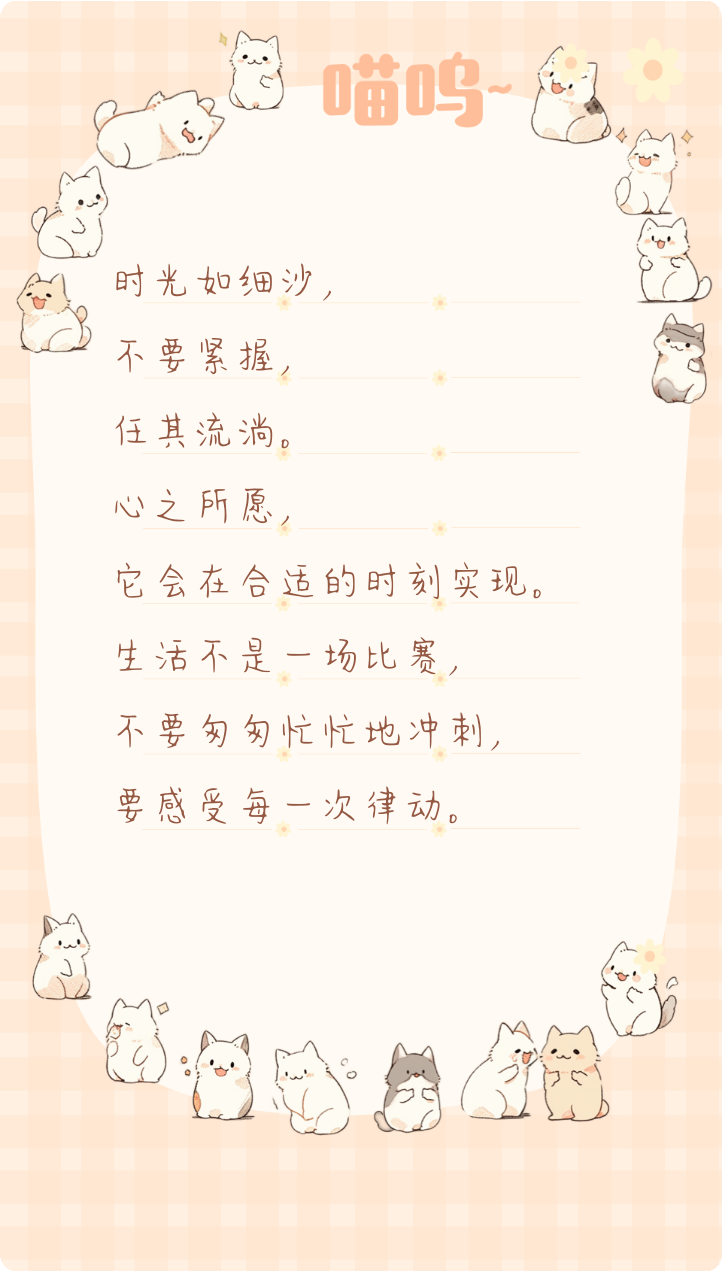 喵呜~
时光如细沙，
不要紧握，
任其流淌。
心之所愿，
它会在合适的时刻实现。
生活不是一场比赛，
不要匆匆忙忙地冲刺，
要感受每一次律动。